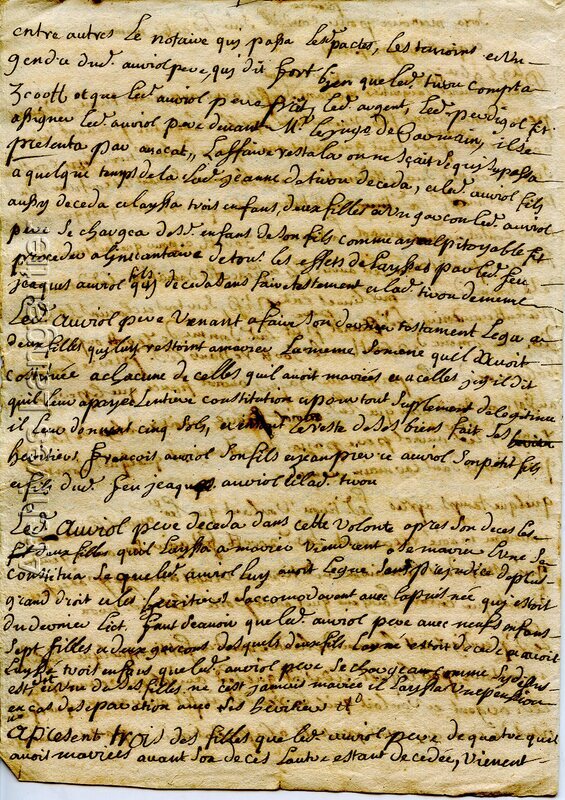 entre autres Le notaire quy passa Lesd. pactes, les tesmoins et un
gendre dud. auriol pere, quy dit fort bien que lad. tivou compta
300tt et que led. auriol pere prit led. argent, Led.
assigner Led. auriol pere devant Mr. le juge de il se
presenta par avocat, Laffaire resta la on ne sçait de quy sy passa
a quelque temps de la Lad. jeanne de tivou deceda, et led. auriol fils
aussy deceda et layssa trois enfans, deux filles et un garcon led. auriol
pere se chargea desd. enfans de son fils comme ayeul pitoyable fit
proceder a linvantaire de tous les effets delaysses par led. feu
jacques auriol fils quy deceda sans faire testement et lad. tivou de meme
Led. Auriol pere venant a faire son dernier testament Legua a
deux filles quy luy restoint a marier La meme somme quel avoit
constituée a chacune de celles quil avoit mariées et a celles cy il dit
quil leur paye Lentiere constitution et pour tout suplement de legitime
il leur donne cinq sols, et en tout le reste de ses biens fait ses
heritiers françois auriol son fils et jean pierre auriol son petit fils
et fils dud. feu jeaques auriol et lad. tivou
Led. Auriol pere deceda dans cette volonte apres son deces les
deux filles quil layssa a marier viendrent a se marier Lune se
constitua se que led. auriol luy avoit legué sans prejudice de plus
grand droit et les heritiers saccomodarent avec la puis née quy estoit
du dernier lict. faut scavoir que led. auriol pere avec neuf enfans
sept filles et deux garcons desquels deux fils Layné estoit decedé et avoit
layssé trois enfans que led. auriol pere se chargea comme sy dessus
est dit et une de ses filles ne sest jamais mariée il layssa une pension
en cas de separation avec ses heritiers
Apresent trois des filles que led. auriol pere de quatre quil
avoit mariées avant son deces Lautre estant decedée, vienent
Archives Languedoc